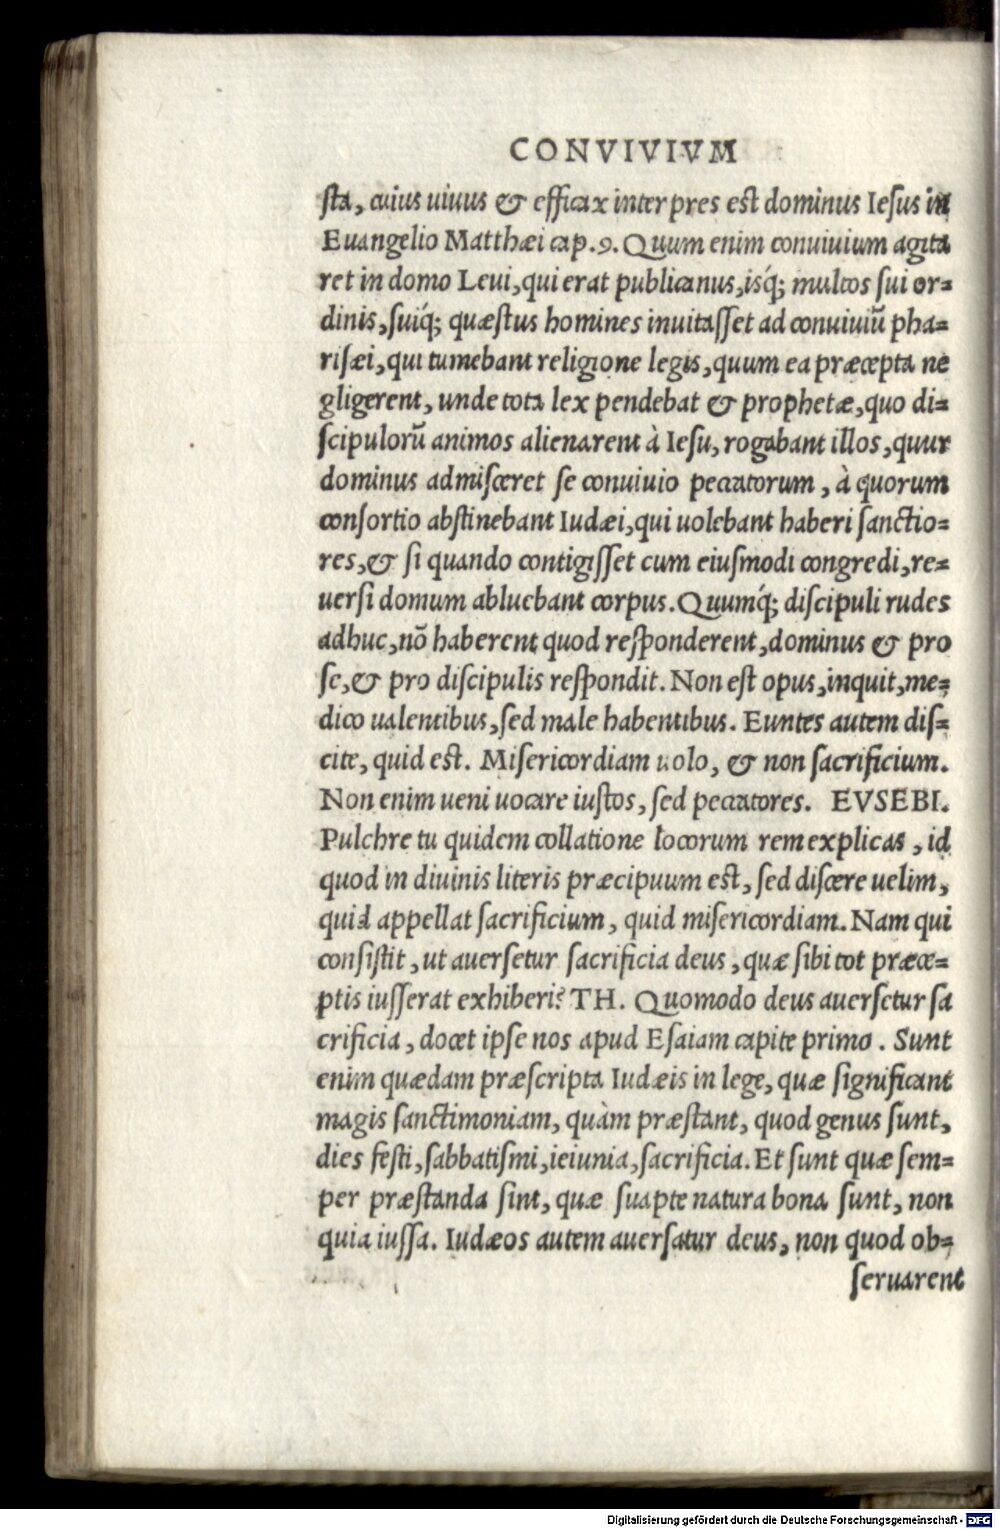 CONVIVIVM
sta, cuius uiuus & efficax interpres est dominus Iesus in
Euangelio Matthæi cap.9. Quum enim conuiuium agita
ret in domo Leui, qui erat publicanus, isq́; multos sui or=
dinis, suiq́; quæstus homines inuitasset ad conuiuiũ pha=
risæi, qui tumebant religione legis, quum ea præcepta ne
gligerent, unde tota lex pendebat & prophetæ, quo di=
scipulorũ animos alienarent à Iesu, rogabant illos, quur
dominus admisceret se conuiuio peccatorum, à quorum
consortio abstinebant Iudæi, qui uolebant haberi sanctio=
res, & si quando contigisset cum eiusmodi congredi, re=
uersi domum abluebant corpus. Quumq́; discipuli rudes
adhuc, nõ haberent quod responderent, dominus & pro
se, & pro discipulis respondit. Non est opus, inquit, me=
dico ualentibus, sed male habentibus. Euntes autem dis=
cite, quid est. Misericordiam uolo, & non sacrificium.
Non enim ueni uocare iustos, sed peccatores. EVSEBI.
Pulchre tu quidem collatione locorum rem explicas, id
quod in diuinis literis præcipuum est, sed discere uelim,
quid appellat sacrificium, quid misericordiam. Nam qui
consistit, ut auersetur sacrificia deus, quæ sibi tot præce=
ptis iusserat exhiberi? TH. Quomodo deus auersetur sa
crificia, docet ipse nos apud Esaiam capite primo. Sunt
enim quædam præscripta Iudæis in lege, quæ significant
magis sanctimoniam, quàm præstant, quod genus sunt,
dies festi, sabbatismi, ieiunia, sacrificia. Et sunt quæ sem=
per præstanda sint, quæ suapte natura bona sunt, non
quia iussa. Iudæos autem auersatur deus, non quod ob=
seruarent
Digitalisierung gefördert durch die Deutsche Forschungsgemeinschaft - DFG